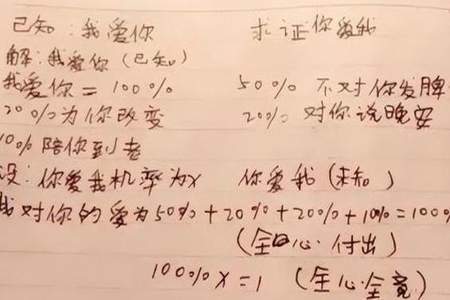 已知：我爱你 求证你爱我
解：我爱你（已知）
我爱你 = 100% 50% 不对你发脾
20% 为你改变 20% 对你说晚安
10% 陪你到老
设：你爱我机率为x 你爱我（未知）
我对你的爱为50%+20%+20%+10%=100%
（全心付出）
100%x=1 （全心全意）